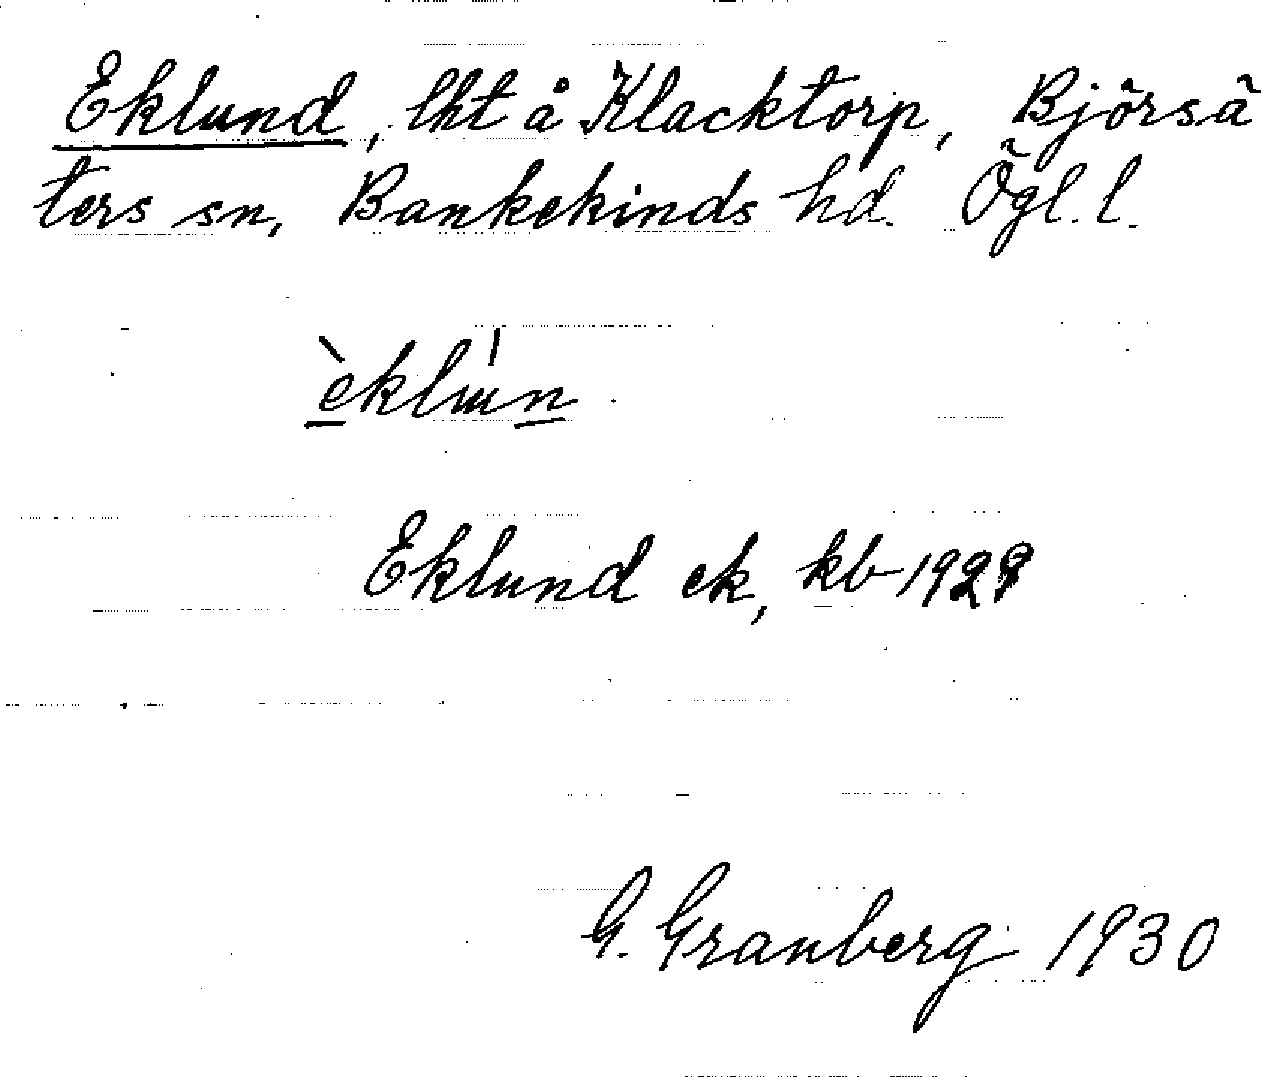 Eklund, lht å Klacktorp, Björsä
ters sn, Bankekinds hd. Ögl. l.
èklɯ́n
Eklund ek, kb 1929
G. Granberg 1930